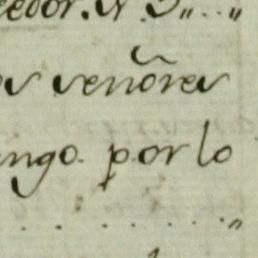 eedor. N. S „...„
os señores
ngo. por lo
. . . . . . . . „